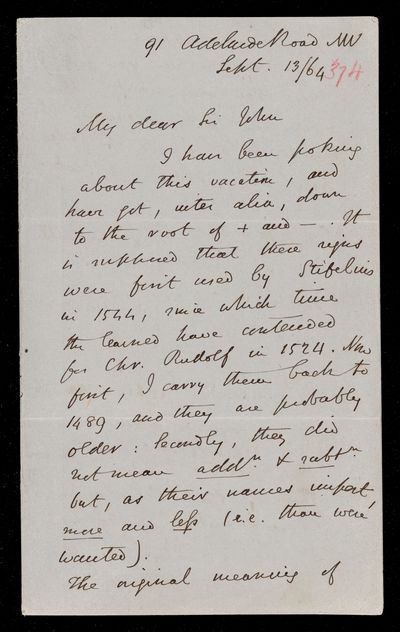 91 Adelaide Road NW
Sept. 13/64 374
My dear Sir John
I have been poking
about this vacation, and
have got, inter alia, down
to the root of + and — . It
is supposed that these signs
were first used by Stifelius
in 1544, since which time
the learned have contended
for Chr. Rudolf in 1524. Now
first, I carry them back to
1489, and they are probably
older: secondly, they did
not mean addn. & subtn.
but, as their names import
more and less (i.e. than were
wanted).
The original meaning of